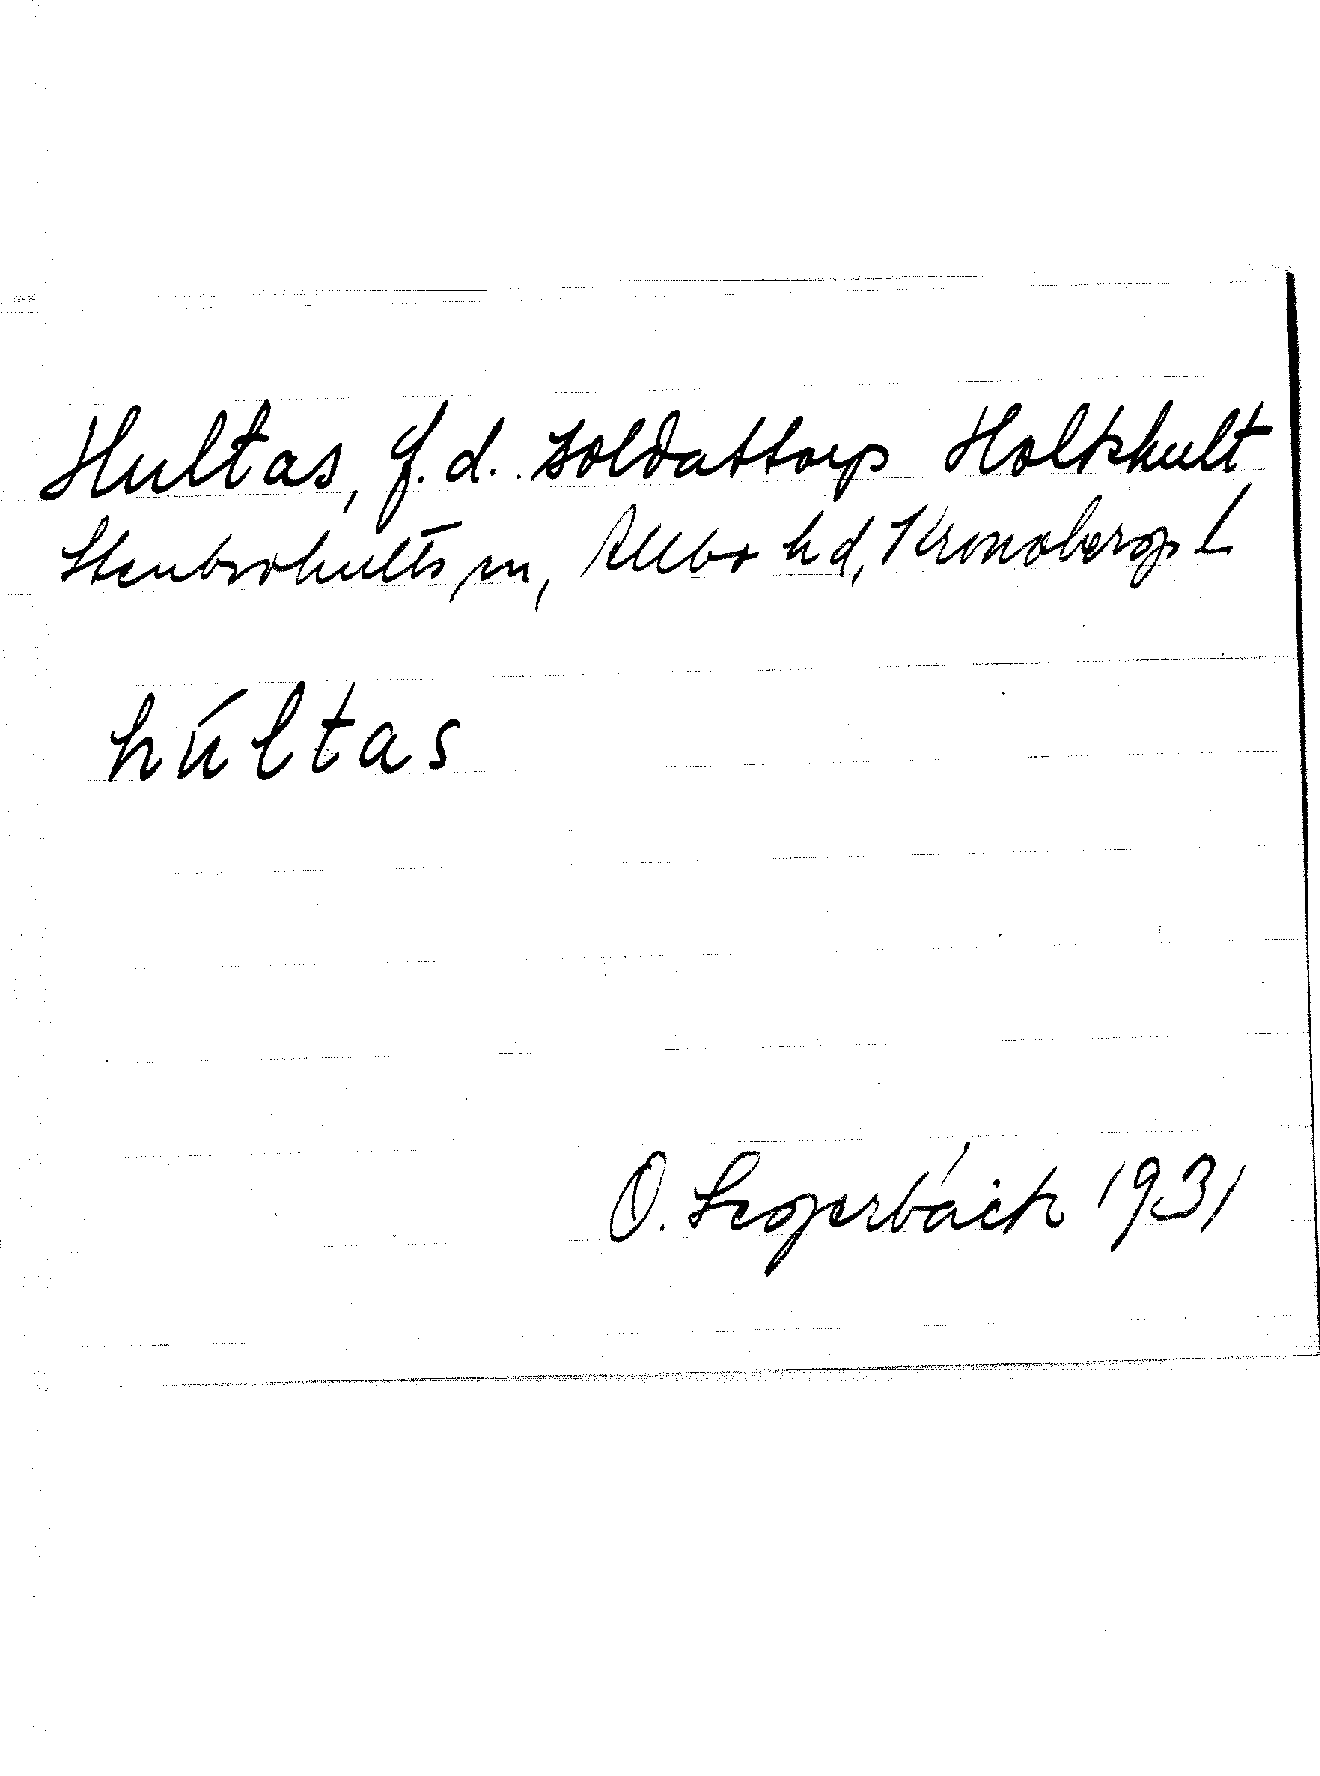 Hultas, f.d. soldattorp Holtkhult
Stenbrohults sn, Allbo hd, Kronobergs l
húltas
O. Segerbäck 1931